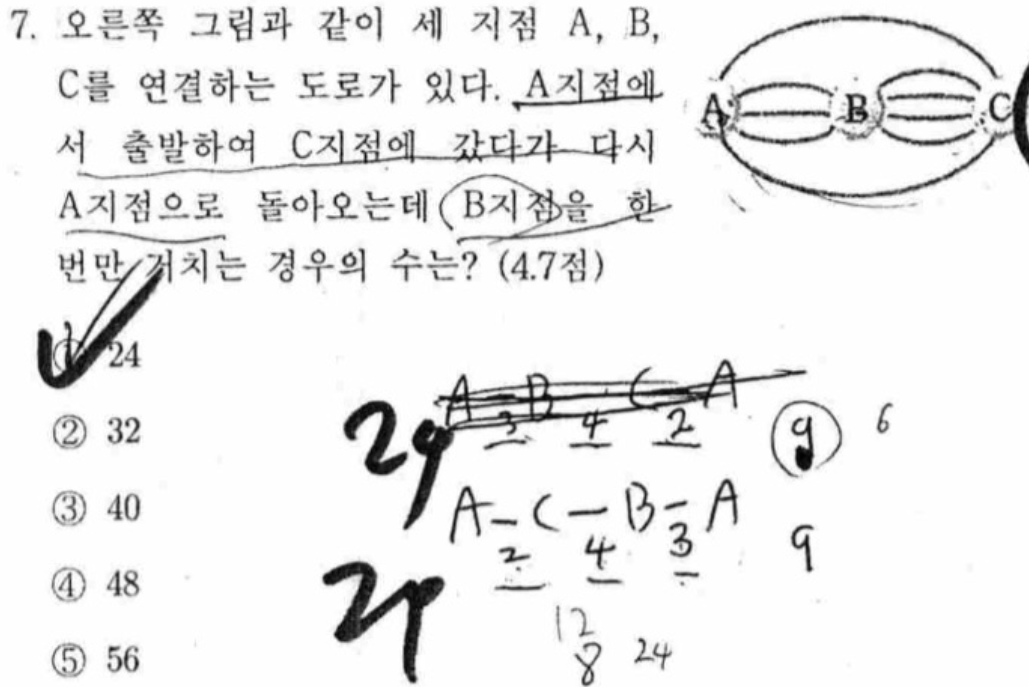 7. 오른쪽 그림과 같이 세 지점 A, B,
C를 연결하는 도로가 있다. A지점에
서 출발하여 C지점에 갔다가 다시
A지점으로 돌아오는데 B지점을 한
번만 거치는 경우의 수는? (4.7점)
A B C
① 24
② 32
③ 40
④ 48
⑤ 56
A - B C - A
3 4 2
9 6
24
A - C - B - A
2 4 3
9
24
12
8 24